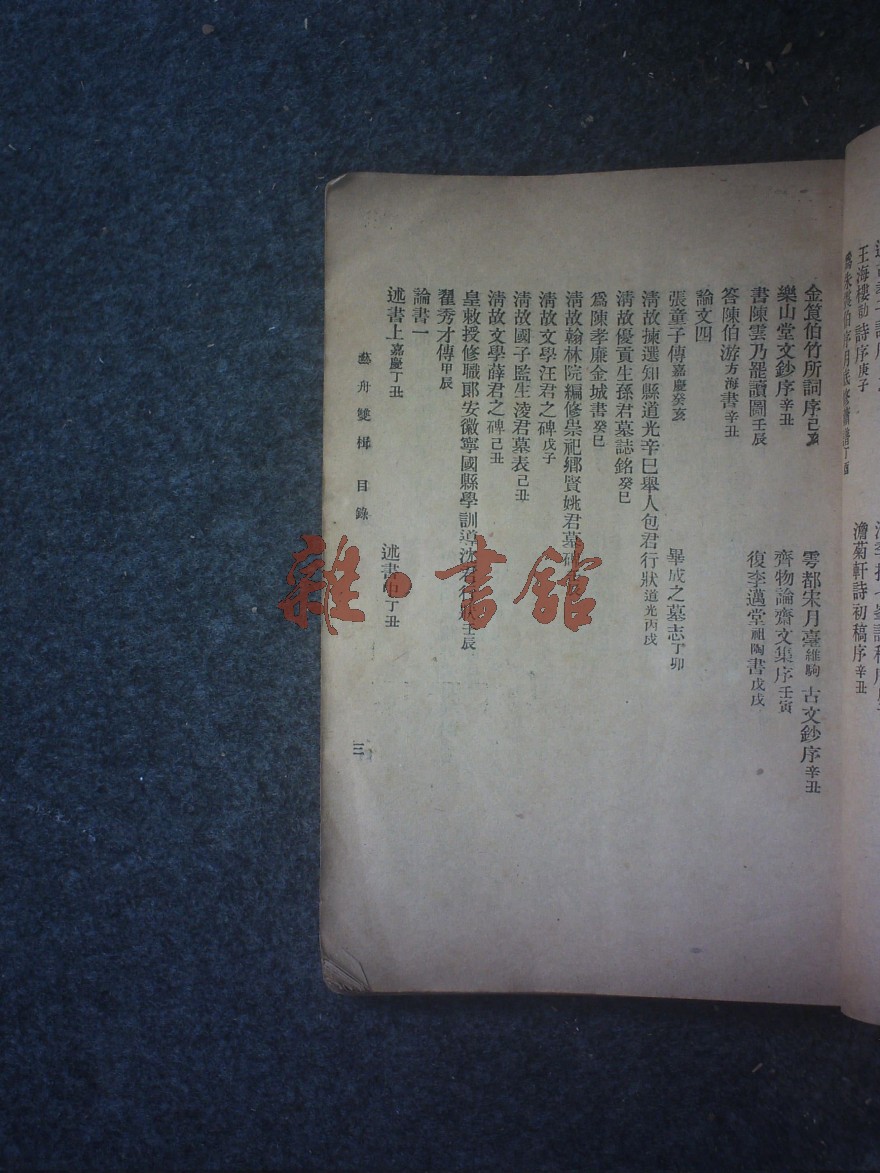 王海樓勸詩序庚子
澹菊軒詩初稿序辛丑
金筤伯竹所詞序己亥
雩都宋月臺維駒古文鈔序辛丑
樂山堂文鈔序辛丑
齊物論齋文集序壬寅
書陳雲乃罷讀圖壬辰
復李邁堂祖陶書戊戌
答陳伯游方海書辛丑
論文四
張童子傳嘉慶癸亥
畢成之墓志丁卯
清故揀選知縣道光辛巳舉人包君行狀道光丙戌
清故優貢生孫君墓誌銘癸巳
爲陳孝廉金城書癸巳
清故翰林院編修崇祀鄉賢姚君墓碑
清故文學汪君之碑戊子
清故國子監生淩君墓表己丑
清故文學薛君之碑己丑
皇敕授修職郎安徽寧國縣學訓導沈君行狀壬辰
翟秀才傳甲辰
論書一
述書上嘉慶丁丑
述書中丁丑
藝舟雙楫 目錄
三
雜·書館